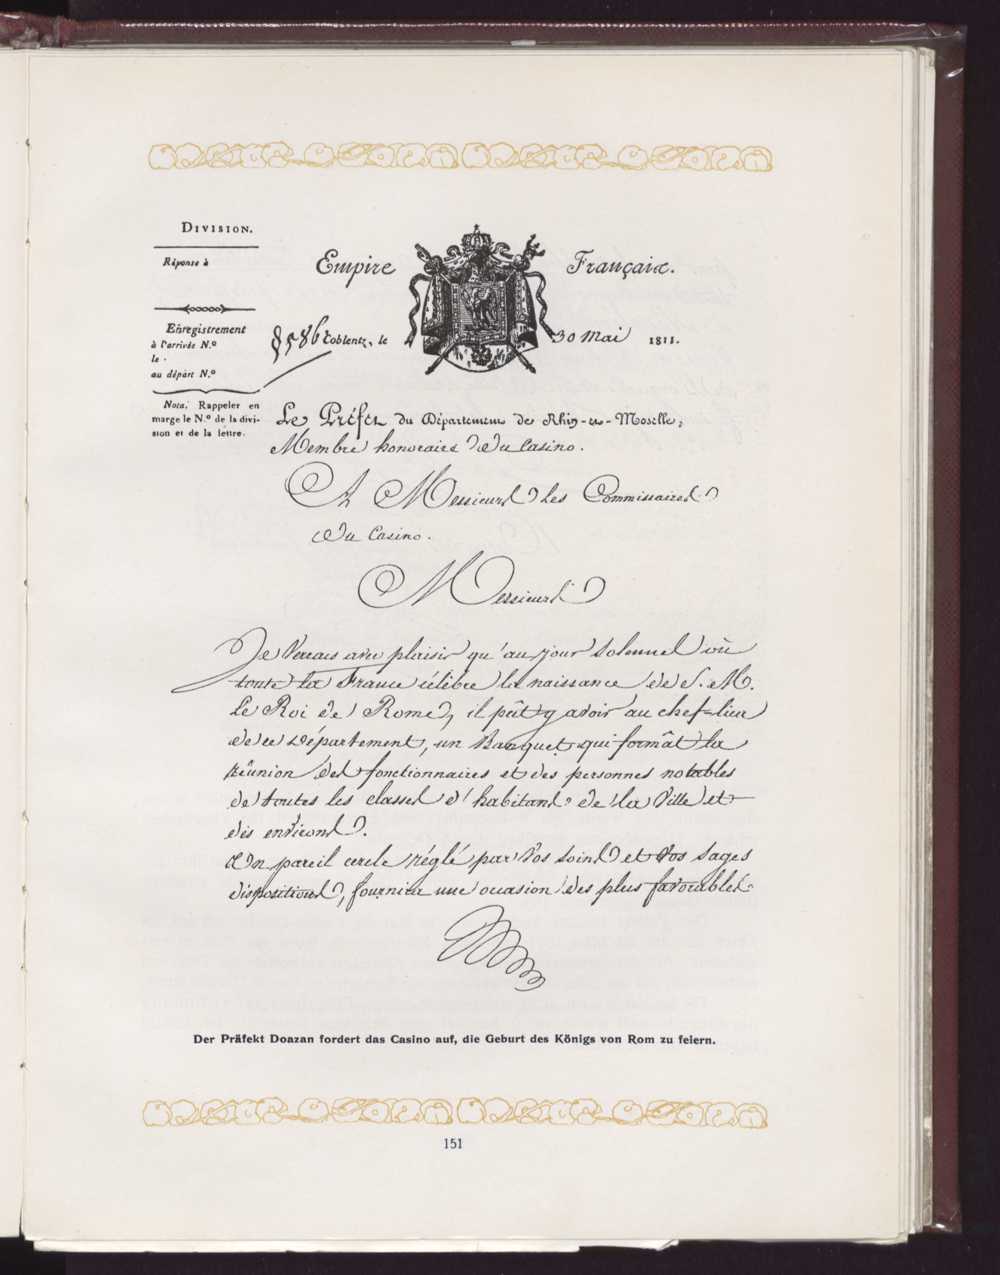 DIVISION.
Réponse à
Empire Française.
Enregistrement
à l'arrivée N.º
le
au départ N.º
8586
Coblentz, le 30 Mai 1811.
Nota. Rappeler en
marge le N.º de la divi-
sion et de la lettre.
Le Préfet du Département de Rhin-et-Moselle,
Membre honoraire du Casino.
A Messieurs les Commissaires
du Casino.
Messieurs
Je verrais avec plaisir qu'au jour solennel où
toute la France célèbre la naissance de S. M.
Le Roi de Rome, il pût y avoir au chef-lieu
de ce Département, un Banquet qui formât la
réunion des fonctionnaires et des personnes notables
de toutes les classes d'habitans de la Ville et
des environs.
Un pareil cercle réglé par vos soins et vos sages
dispositions, fournira une occasion des plus favorables
Der Präfekt Doazan fordert das Casino auf, die Geburt des Königs von Rom zu feiern.
151